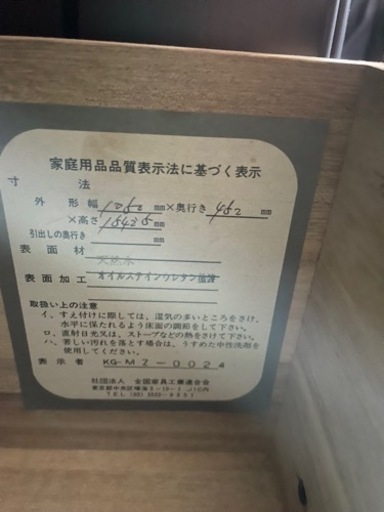 家庭用品品質表示法に基づく表示
寸法
外形 幅 1050 mm×奥行き 452 mm
×高さ mm
引出しの奥行き mm
表面材 天然木
表面加工 オイルステインウレタン塗装
取扱い上の注意
イ、すえ付けに際しては、湿気の多いところをさけ、
水平に保たれるよう床面の調節をして下さい。
ロ、直射日光又は、ストーブなどの熱をさけて下さい。
ハ、著しい汚れを落とす場合は、うすめた中性洗剤を
使用してください。
表示者 KG-MZ-002
社団法人 全国家具工業連合会
東京都中央区
TEL (03)